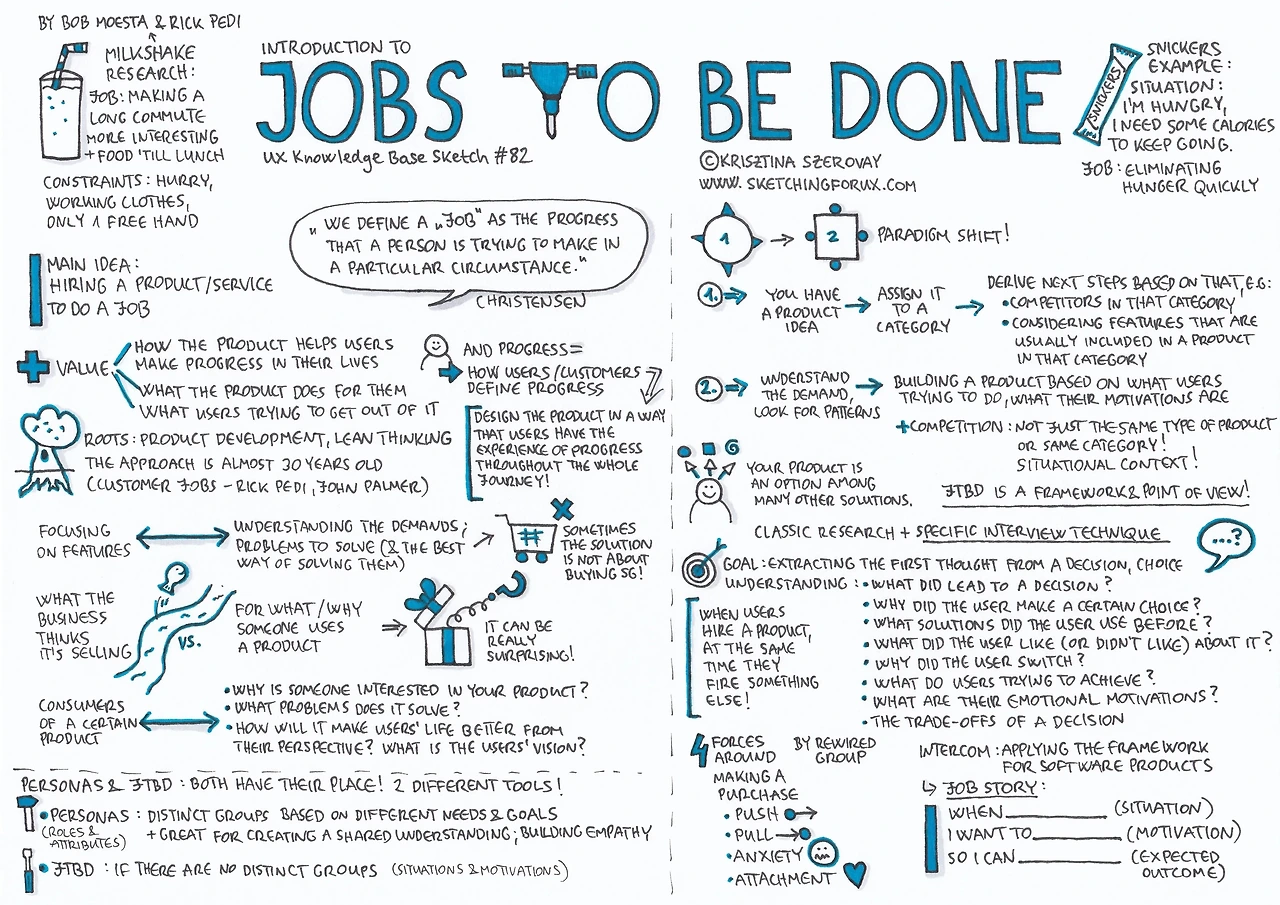 BY BOB MOESTA & RICK PEDI
MILKSHAKE
RESEARCH:
JOB: MAKING A
LONG COMMUTE
MORE INTERESTING
+ FOOD 'TILL LUNCH
CONSTRAINTS: HURRY,
WORKING CLOTHES,
ONLY 1 FREE HAND
INTRODUCTION TO
JOBS TO BE DONE
UX Knowledge Base Sketch #82
©KRISZTINA SZEROVAY
WWW.SKETCHINGFORUX.COM
/SNICKERS/
SNICKERS
EXAMPLE:
SITUATION:
I'M HUNGRY,
I NEED SOME CALORIES
TO KEEP GOING.
JOB: ELIMINATING
HUNGER QUICKLY
„WE DEFINE A „JOB" AS THE PROGRESS
THAT A PERSON IS TRYING TO MAKE IN
A PARTICULAR CIRCUMSTANCE."
CHRISTENSEN
MAIN IDEA:
HIRING A PRODUCT/SERVICE
TO DO A JOB
+ VALUE
HOW THE PRODUCT HELPS USERS
MAKE PROGRESS IN THEIR LIVES
WHAT THE PRODUCT DOES FOR THEM
WHAT USERS TRYING TO GET OUT OF IT
AND PROGRESS=
HOW USERS/CUSTOMERS
DEFINE PROGRESS
DESIGN THE PRODUCT IN A WAY
THAT USERS HAVE THE
EXPERIENCE OF PROGRESS
THROUGHOUT THE WHOLE
JOURNEY!
ROOTS: PRODUCT DEVELOPMENT, LEAN THINKING
THE APPROACH IS ALMOST 30 YEARS OLD
(CUSTOMER JOBS - RICK PEDI, JOHN PALMER)
FOCUSING
ON FEATURES
UNDERSTANDING THE DEMANDS;
PROBLEMS TO SOLVE (& THE BEST
WAY OF SOLVING THEM)
#
SOMETIMES
THE SOLUTION
IS NOT ABOUT
BUYING SG!
WHAT THE
BUSINESS
THINKS
IT'S SELLING
VS.
FOR WHAT/WHY
SOMEONE USES
A PRODUCT
?
IT CAN BE
REALLY
SURPRISING!
CONSUMERS
OF A CERTAIN
PRODUCT
• WHY IS SOMEONE INTERESTED IN YOUR PRODUCT?
• WHAT PROBLEMS DOES IT SOLVE?
• HOW WILL IT MAKE USERS' LIFE BETTER FROM
THEIR PERSPECTIVE? WHAT IS THE USERS' VISION?
PERSONAS & JTBD: BOTH HAVE THEIR PLACE! 2 DIFFERENT TOOLS!
• PERSONAS: DISTINCT GROUPS BASED ON DIFFERENT NEEDS & GOALS
(ROLES &
ATTRIBUTES)
+ GREAT FOR CREATING A SHARED UNDERSTANDING; BUILDING EMPATHY
• JTBD: IF THERE ARE NO DISTINCT GROUPS (SITUATIONS & MOTIVATIONS)
1
2
PARADIGM SHIFT!
1.
YOU HAVE
A PRODUCT
IDEA
ASSIGN IT
TO A
CATEGORY
DERIVE NEXT STEPS BASED ON THAT, E.G:
• COMPETITORS IN THAT CATEGORY
• CONSIDERING FEATURES THAT ARE
USUALLY INCLUDED IN A PRODUCT
IN THAT CATEGORY
2.
UNDERSTAND
THE DEMAND,
LOOK FOR PATTERNS
BUILDING A PRODUCT BASED ON WHAT USERS
TRYING TO DO, WHAT THEIR MOTIVATIONS ARE
+ COMPETITION: NOT JUST THE SAME TYPE OF PRODUCT
OR SAME CATEGORY!
SITUATIONAL CONTEXT!
YOUR PRODUCT IS
AN OPTION AMONG
MANY OTHER SOLUTIONS.
JTBD IS A FRAMEWORK & POINT OF VIEW!
CLASSIC RESEARCH + SPECIFIC INTERVIEW TECHNIQUE
....?
GOAL: EXTRACTING THE FIRST THOUGHT FROM A DECISION, CHOICE
UNDERSTANDING: • WHAT DID LEAD TO A DECISION?
• WHY DID THE USER MAKE A CERTAIN CHOICE?
• WHAT SOLUTIONS DID THE USER USE BEFORE?
• WHAT DID THE USER LIKE (OR DIDN'T LIKE) ABOUT IT?
• WHY DID THE USER SWITCH?
• WHAT DO USERS TRYING TO ACHIEVE?
• WHAT ARE THEIR EMOTIONAL MOTIVATIONS?
• THE TRADE-OFFS OF A DECISION
WHEN USERS
HIRE A PRODUCT,
AT THE SAME
TIME THEY
FIRE SOMETHING
ELSE!
4 FORCES
AROUND
MAKING A
PURCHASE
BY REWIRED
GROUP
• PUSH
• PULL
• ANXIETY
• ATTACHMENT
INTERCOM: APPLYING THE FRAMEWORK
FOR SOFTWARE PRODUCTS
JOB STORY:
WHEN __________ (SITUATION)
I WANT TO __________ (MOTIVATION)
SO I CAN __________ (EXPECTED
OUTCOME)